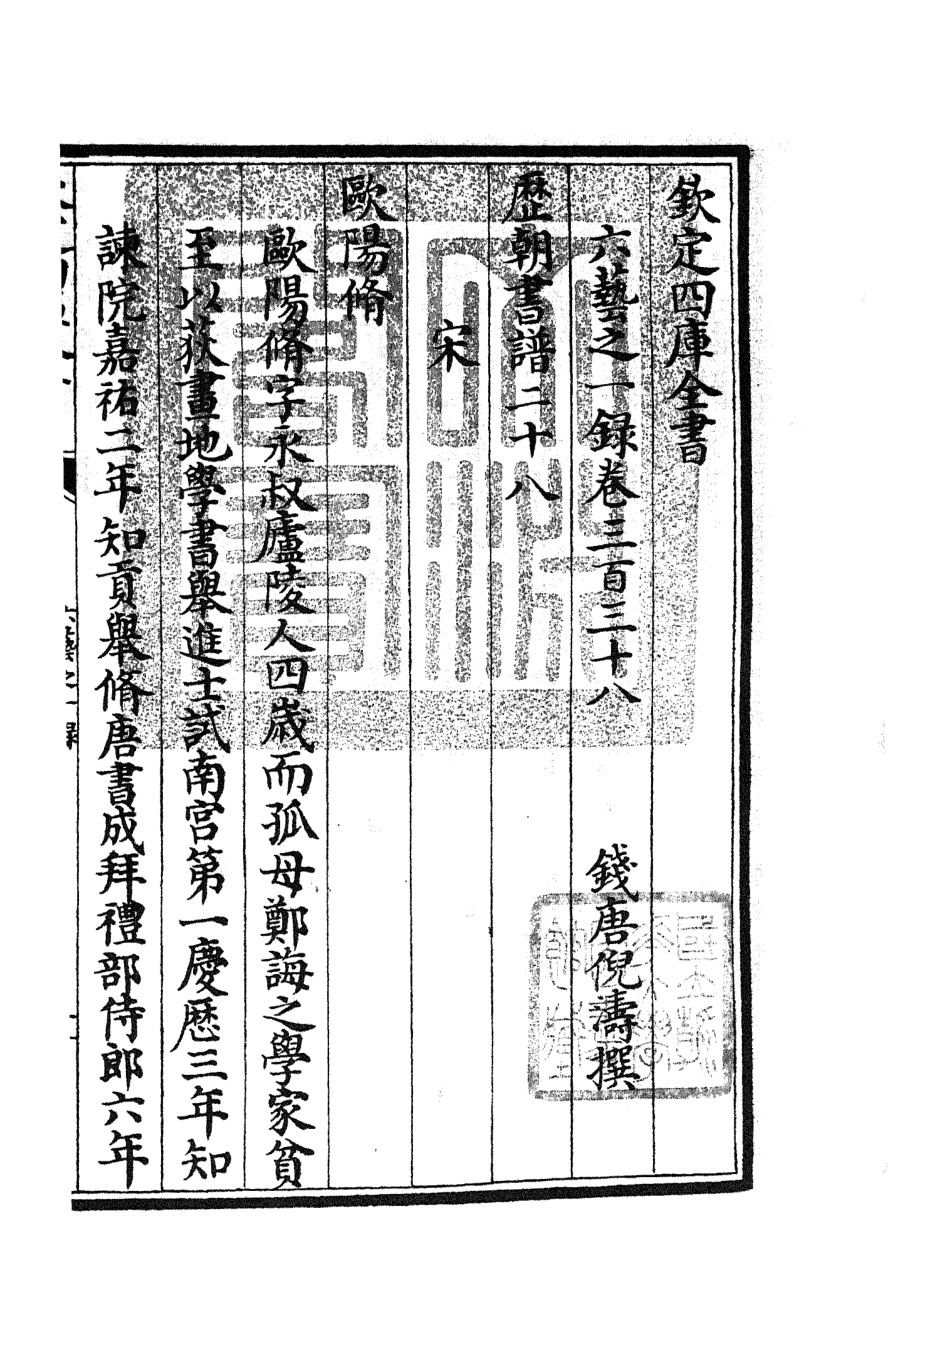 欽定四庫全書
六藝之一録卷三百三十八
錢唐倪濤撰
歷朝書譜二十八
宋
歐陽脩
歐陽脩字永叔廬陵人四歲而孤母鄭誨之學家貧
至以荻畫地學書舉進士試南宮第一慶歷三年知
諫院嘉祐二年知貢舉脩唐書成拜禮部侍郎六年